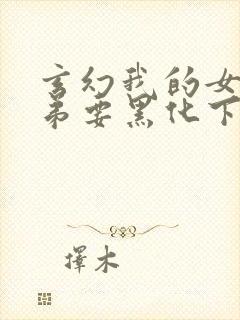 玄幻我的女
弟要黑化下
擇木